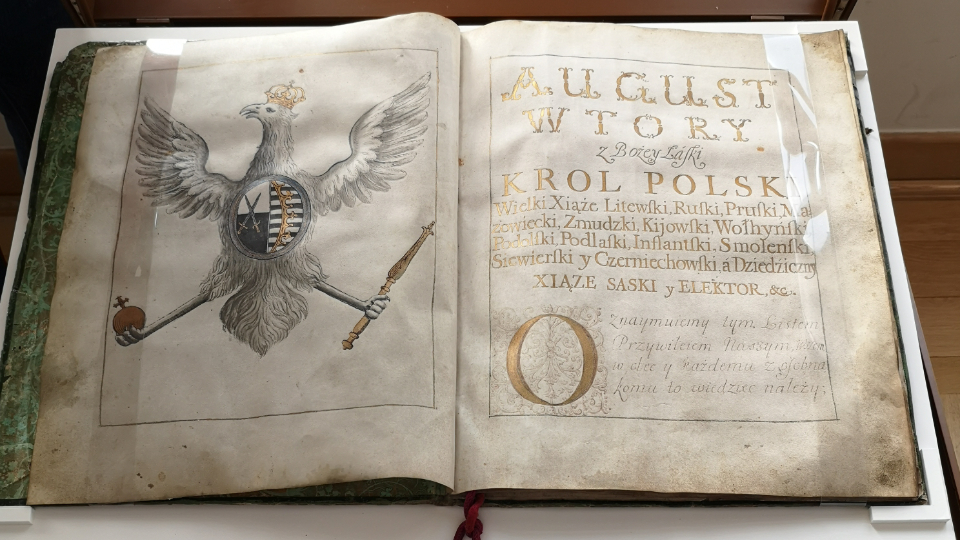 AUGUST
WTORY.
z Bożey Łáſki
KROL POLSK
Wielki Xiąże Litewſki, Ruſki, Pruſki, Ma-
zowiecki, Zmudzki, Kijowſki, Wołhyńſki
Podolſki, Podlaſki, Inflantſki, Smolenſki
Siewierſki y Czerniechowſki, a Dziedziczny
XIĄZE SASKI y ELEKTOR, &c.
Oznaymuiemy tym Listem
Przywileiem Naszym,
y każdemu z
komu to wiedziec należy;